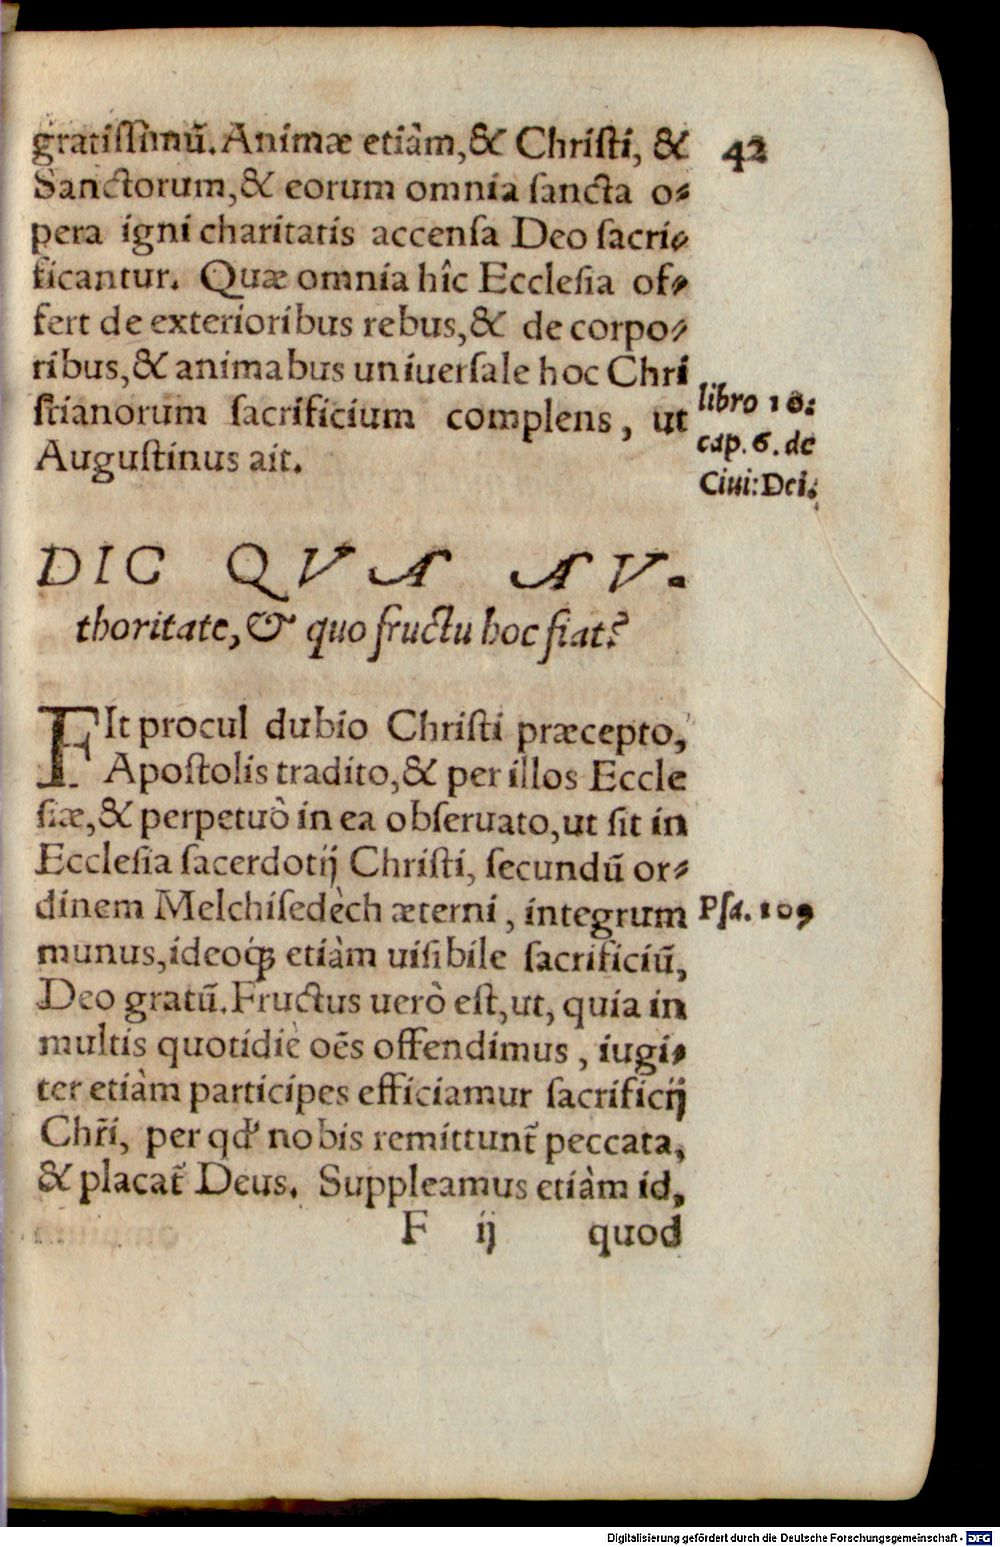 gratiſſimũ. Animæ etiàm, & Chriſti, &
42
Sanctorum, & eorum omnia ſancta o-
pera igni charitatis accenſa Deo ſacri-
ficantur. Quæ omnia hîc Eccleſia of-
fert de exterioribus rebus, & de corpo-
ribus, & animabus uniuerſale hoc Chri
ſtianorum ſacrificium complens, ut
Auguſtinus ait.
libro 10:
cap. 6. de
Ciui: Dei.
DIC QVA AV-
thoritate, & quo fructu hoc fiat?
FIt procul dubio Chriſti præcepto,
Apoſtolis tradito, & per illos Eccle
ſiæ, & perpetuò in ea obſeruato, ut ſit in
Eccleſia ſacerdotij Chriſti, ſecundũ or-
dinem Melchiſedèch æterni, integrum
Pſa. 109
munus, ideoq́; etiàm uiſibile ſacrificiũ,
Deo gratũ. Fructus uerò eſt, ut, quia in
multis quotidiè oẽs offendimus, iugi-
ter etiàm participes efficiamur ſacrificij
Chr̃i, per qd' nobis remittunt̃ peccata,
& placat̃ Deus. Suppleamus etiàm id,
F ij quod
Digitalisierung gefördert durch die Deutsche Forschungsgemeinschaft - DFG